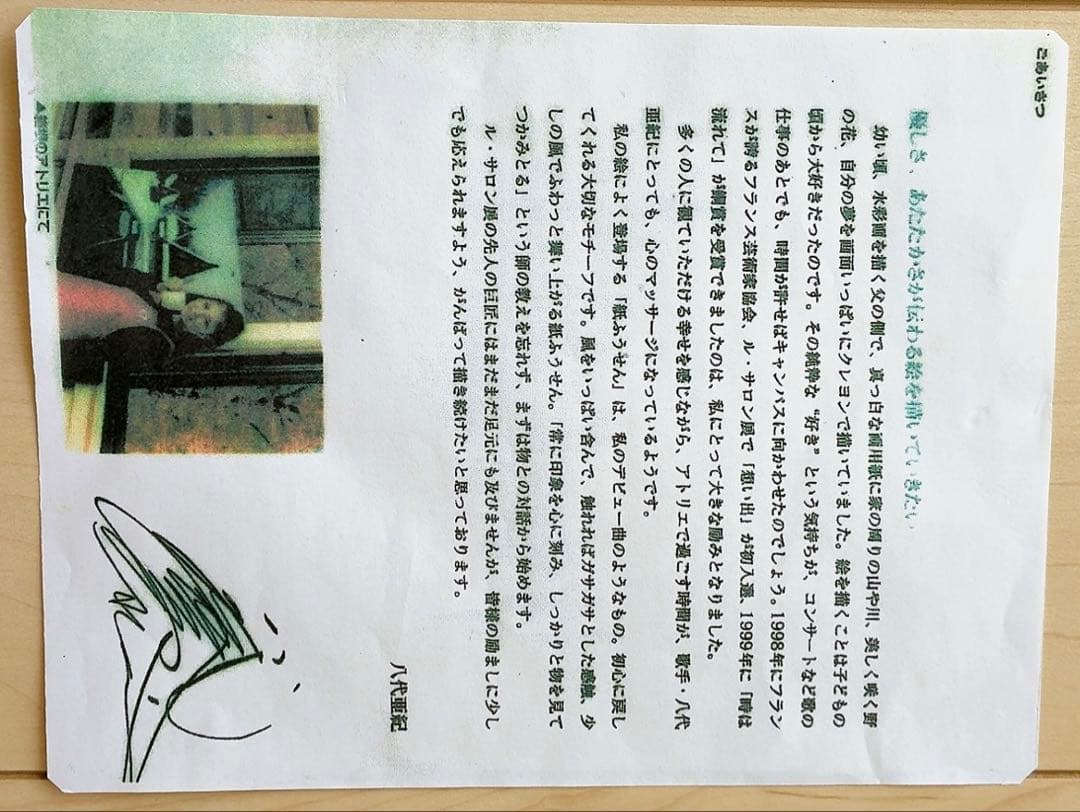 ごあいさつ
優しさ、あたたかさが伝わる絵を描いていきたい
幼い頃、水彩画を描く父の側で、真っ白な画用紙に家の周りの山や川、美しく咲く野
の花、自分の夢を画面いっぱいにクレヨンで描いていました。絵を描くことは子どもの
頃から大好きだったのです。その純粋な“好き”という気持ちが、コンサートなど歌の
仕事のあとでも、時間が許せばキャンバスに向かわせたのでしょう。1998年にフラン
スが誇るフランス芸術家協会、ル・サロン展で「想い出」が初入選、1999年に「時は
流れて」が銅賞を受賞できましたのは、私にとって大きな励みとなりました。
多くの人に観ていただける幸せを感じながら、アトリエで過ごす時間が、歌手・八代
亜紀にとっても、心のマッサージになっているようです。
私の絵によく登場する「紙ふうせん」は、私のデビュー曲のようなもの。初心に戻し
てくれる大切なモチーフです。風をいっぱい含んで、触れればガサガサとした感触、少
しの風でふわっと舞い上がる紙ふうせん。「常に印象を心に刻み、しっかりと物を見て
つかみとる」という師の教えを忘れず、まずは物との対話から始めます。
ル・サロン展の先人の巨匠にはまだまだ足元にも及びませんが、皆様の励ましに少し
でも応えられますよう、がんばって描き続けたいと思っております。
八代亜紀
のアトリエにて